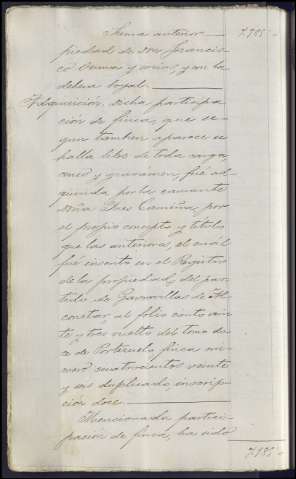 Suma anterior 7.985
piedad de Don Francis
co Osuna y otros, y con la
dehesa boyal.
Adquisición, dicha participa
ción de finca, que se
gun tambien aparece se
halla libre de toda carga,
censo y gravamen, fué ad
quirida por la causante
Doña Ines Camiña, por
el propio concepto y titulo
que las anteriores, el cual
fué inscrito en el Registro
de la propiedad, del par
tido de Garrovillas de Al
conetar al folio ciento vein
te y tres vuelto del tomo do
ce de Portezuelo, finca nú
mero cuatrocientos veinte
y seis duplicado, inscrip
ción doce.
Mencionada partici
pación de finca, ha sido
7.985